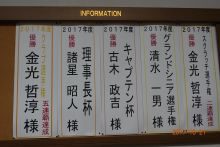 INFORMATION
2017年度
スクラッチ選手権
優勝
金光哲淳様
2017年度
グランドシニア選手権
優勝
清水一男様
2017年度
キャプテン杯
優勝
古木政吉様
2017年度
理事長杯
優勝
諸星昭人様
2017年度
優勝
金光哲淳様
五連覇達成